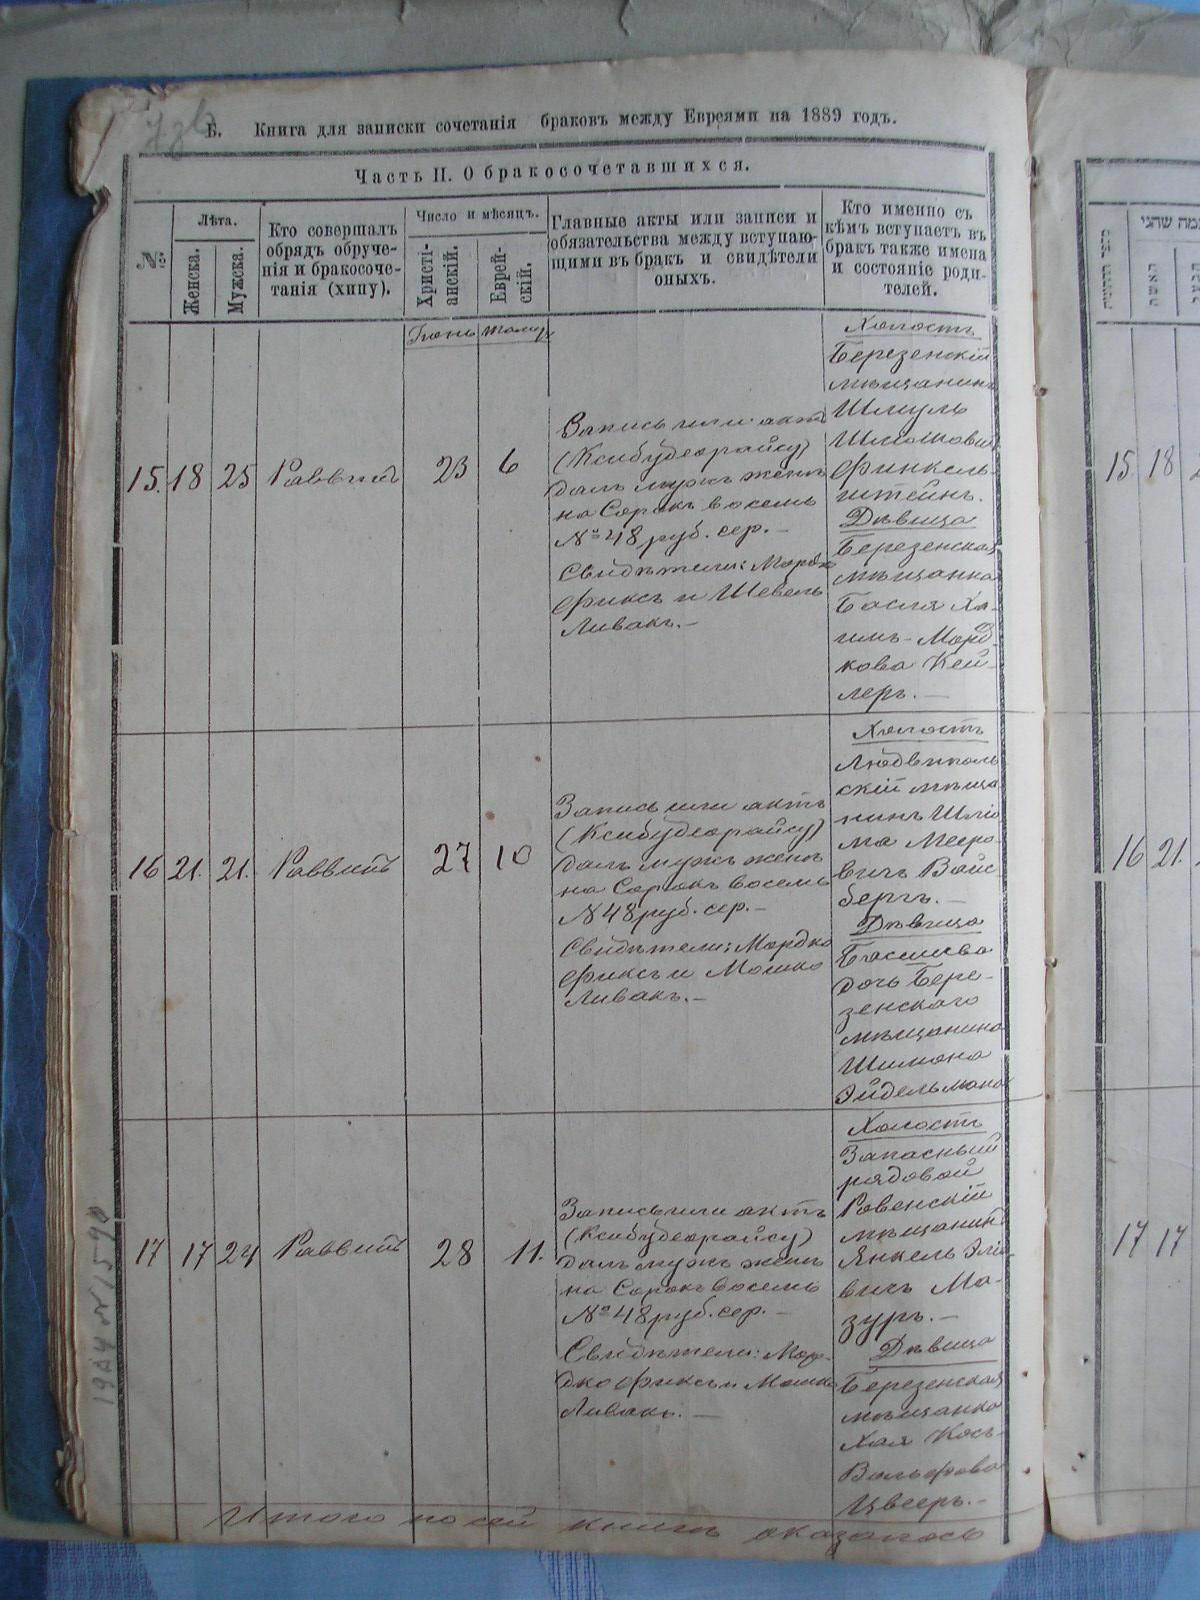 Б. Книга для записки сочетанія браковъ между Евреями на 1889 годъ.
Часть II. О бракосочетавшихся.
№
Лѣта.
Женска.
Мужска.
Кто совершалъ
обрядъ обруче-
нія и бракосоче-
танія (хипу).
Число и мѣсяцъ.
Христі-
анскій.
Еврей-
скій.
Главные акты или записи и
обязательства между вступаю-
щими въ бракъ и свидѣтели
оныхъ.
Кто именно съ
кѣмъ вступаетъ въ
бракъ также имена
и состояніе роди-
телей.
Іюнь
15. 18 25 Раввинъ 23 6
Запись или актъ
(Ксибудеорайсу)
далъ мужъ женѣ
на Сорокъ восемь
№ 48 руб. сер. —
Свидѣтели: Мордко
Фиксъ и Шевель
Ливакъ. —
Холостъ
Березенскій
мѣщанинъ
Шмуль
Шліомовичъ
Финкель-
штейнъ.
Дѣвица
Березенская
мѣщанка
Бася Ха-
имъ-Морд-
кова Кей-
леръ. —
16 21. 21. Раввинъ 27 10
Запись или актъ
(Ксибудеорайсу)
далъ мужъ женѣ
на Сорокъ восемь
№ 48 руб. сер. —
Свидѣтели: Мордко
Фиксъ и Мошко
Ливакъ. —
Холостъ
Людвиполь-
скій мѣща-
нинъ Шліо-
ма Мееро-
вичъ Вайс-
бергъ. —
Дѣвица
Басшева
дочь Бере-
зенскаго
мѣщанина
Шимона
Эйдельмана
17 17 24 Раввинъ 28 11.
Запись или актъ
(Ксибудеорайсу)
далъ мужъ женѣ
на Сорокъ восемь
№ 48 руб. сер. —
Свидѣтели: Мор-
дко Фиксъ и Мошко
Ливакъ. —
Холостъ
Запасный
рядовой
Ровенскій
мѣщанинъ
Янкель Эліо-
вичъ Ма-
зуръ. —
Дѣвица
Березенская
мѣщанка
Хая Кось-
Вольфова
Цвееръ. —
Итого по сей книгѣ оказалось
15 18
16 21.
17 17